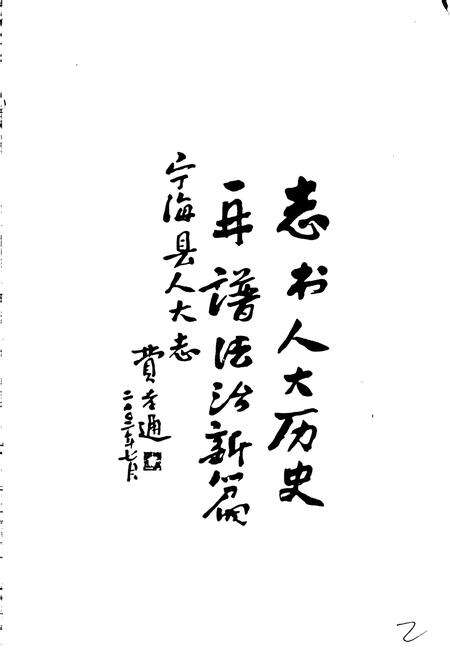 志书人大历史
再谱法治新篇
宁海县人大志
费孝通
二〇〇二年七月